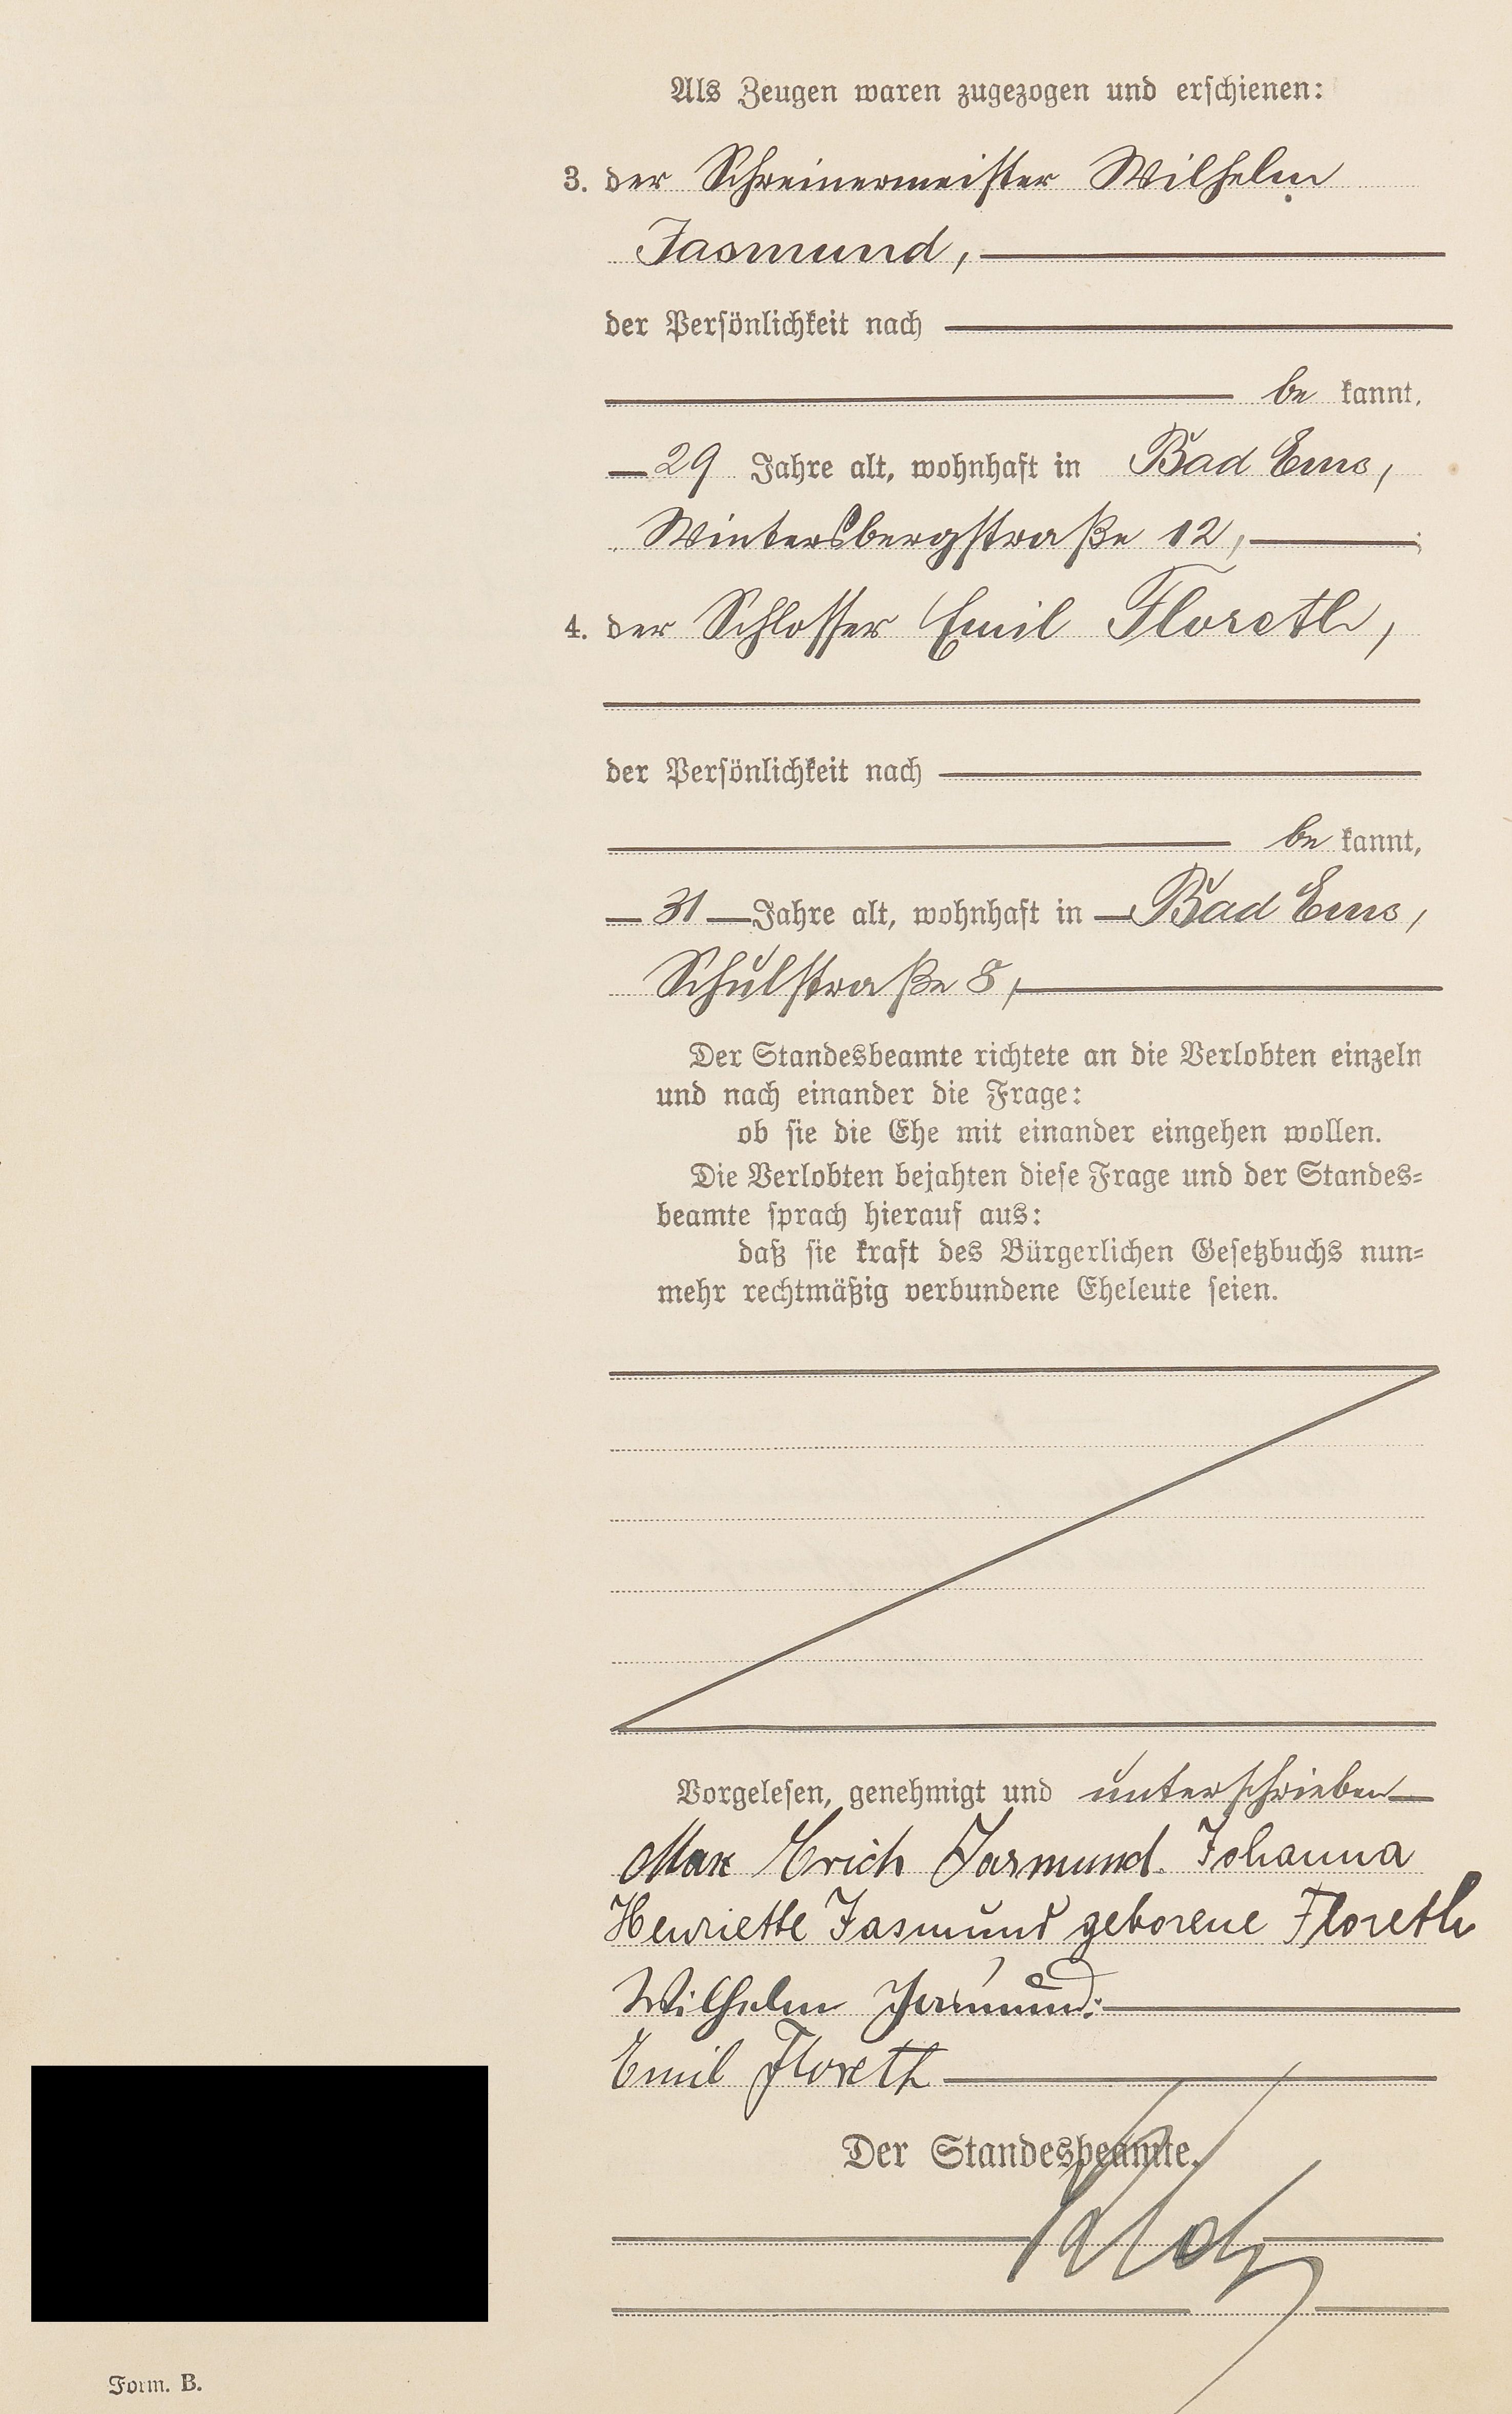 Als Zeugen waren zugezogen und erschienen:
3. der Schreinermeister Wilhelm
Jasmund,
der Persönlichkeit nach
be kannt,
29 Jahre alt, wohnhaft in Bad Ems,
Wintersbergstraße 12,;
4. der Schlosser Emil Floreth,
der Persönlichkeit nach
be kannt,
31 Jahre alt, wohnhaft in Bad Ems,
Schulstraße 8,
Der Standesbeamte richtete an die Verlobten einzeln
und nach einander die Frage:
ob sie die Ehe mit einander eingehen wollen.
Die Verlobten bejahten diese Frage und der Standes-
beamte sprach hierauf aus:
daß sie kraft des Bürgerlichen Gesetzbuchs nun-
mehr rechtmäßig verbundene Eheleute seien.
Vorgelesen, genehmigt und unterschrieben
Max Erich Jasmund. Johanna
Henriette Jasmund geborene Floreth
Wilhelm Jasmund.
Emil Floreth
Der Standesbeamte.
Form. B.